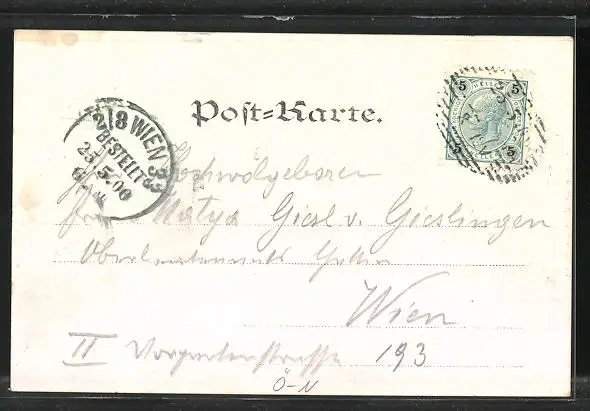 Post=Karte.
2/8 WIEN 3/3
BESTELLT
25.5.00
5 HELLER 5
5 5
Hochwolgeboren
Frau Matya Giesl v. Gieslingen
Oberlieutenants Gattin
Wien
II Vorgartenstrasse 193
Ö-N